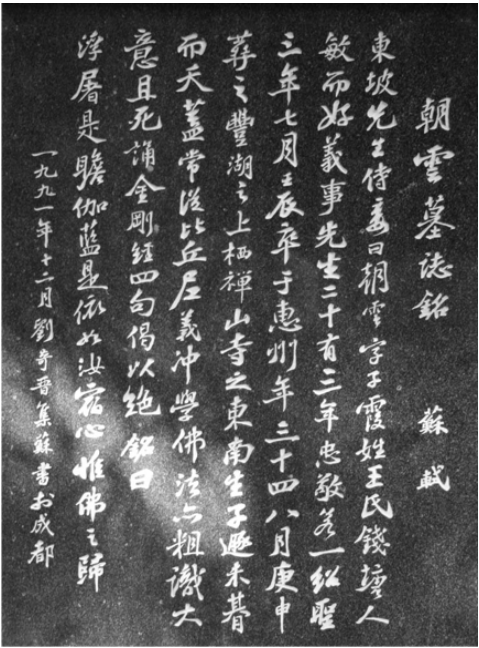 朝雲墓誌銘 蘇軾
東坡先生侍妾曰朝雲字子霞姓王氏錢塘人
敏而好義事先生二十有三年忠敬若一紹聖
三年七月壬辰卒于惠州年三十四八月庚申
葬之豐湖之上栖禪山寺之東南生子遯未朞
而夭蓋常從比丘尼義沖學佛法亦粗識大
意且死誦金剛經四句偈以絶銘曰
浮屠是瞻伽藍是依如汝宿心惟佛之歸
一九九一年十二月劉奇晉集蘇書於成都